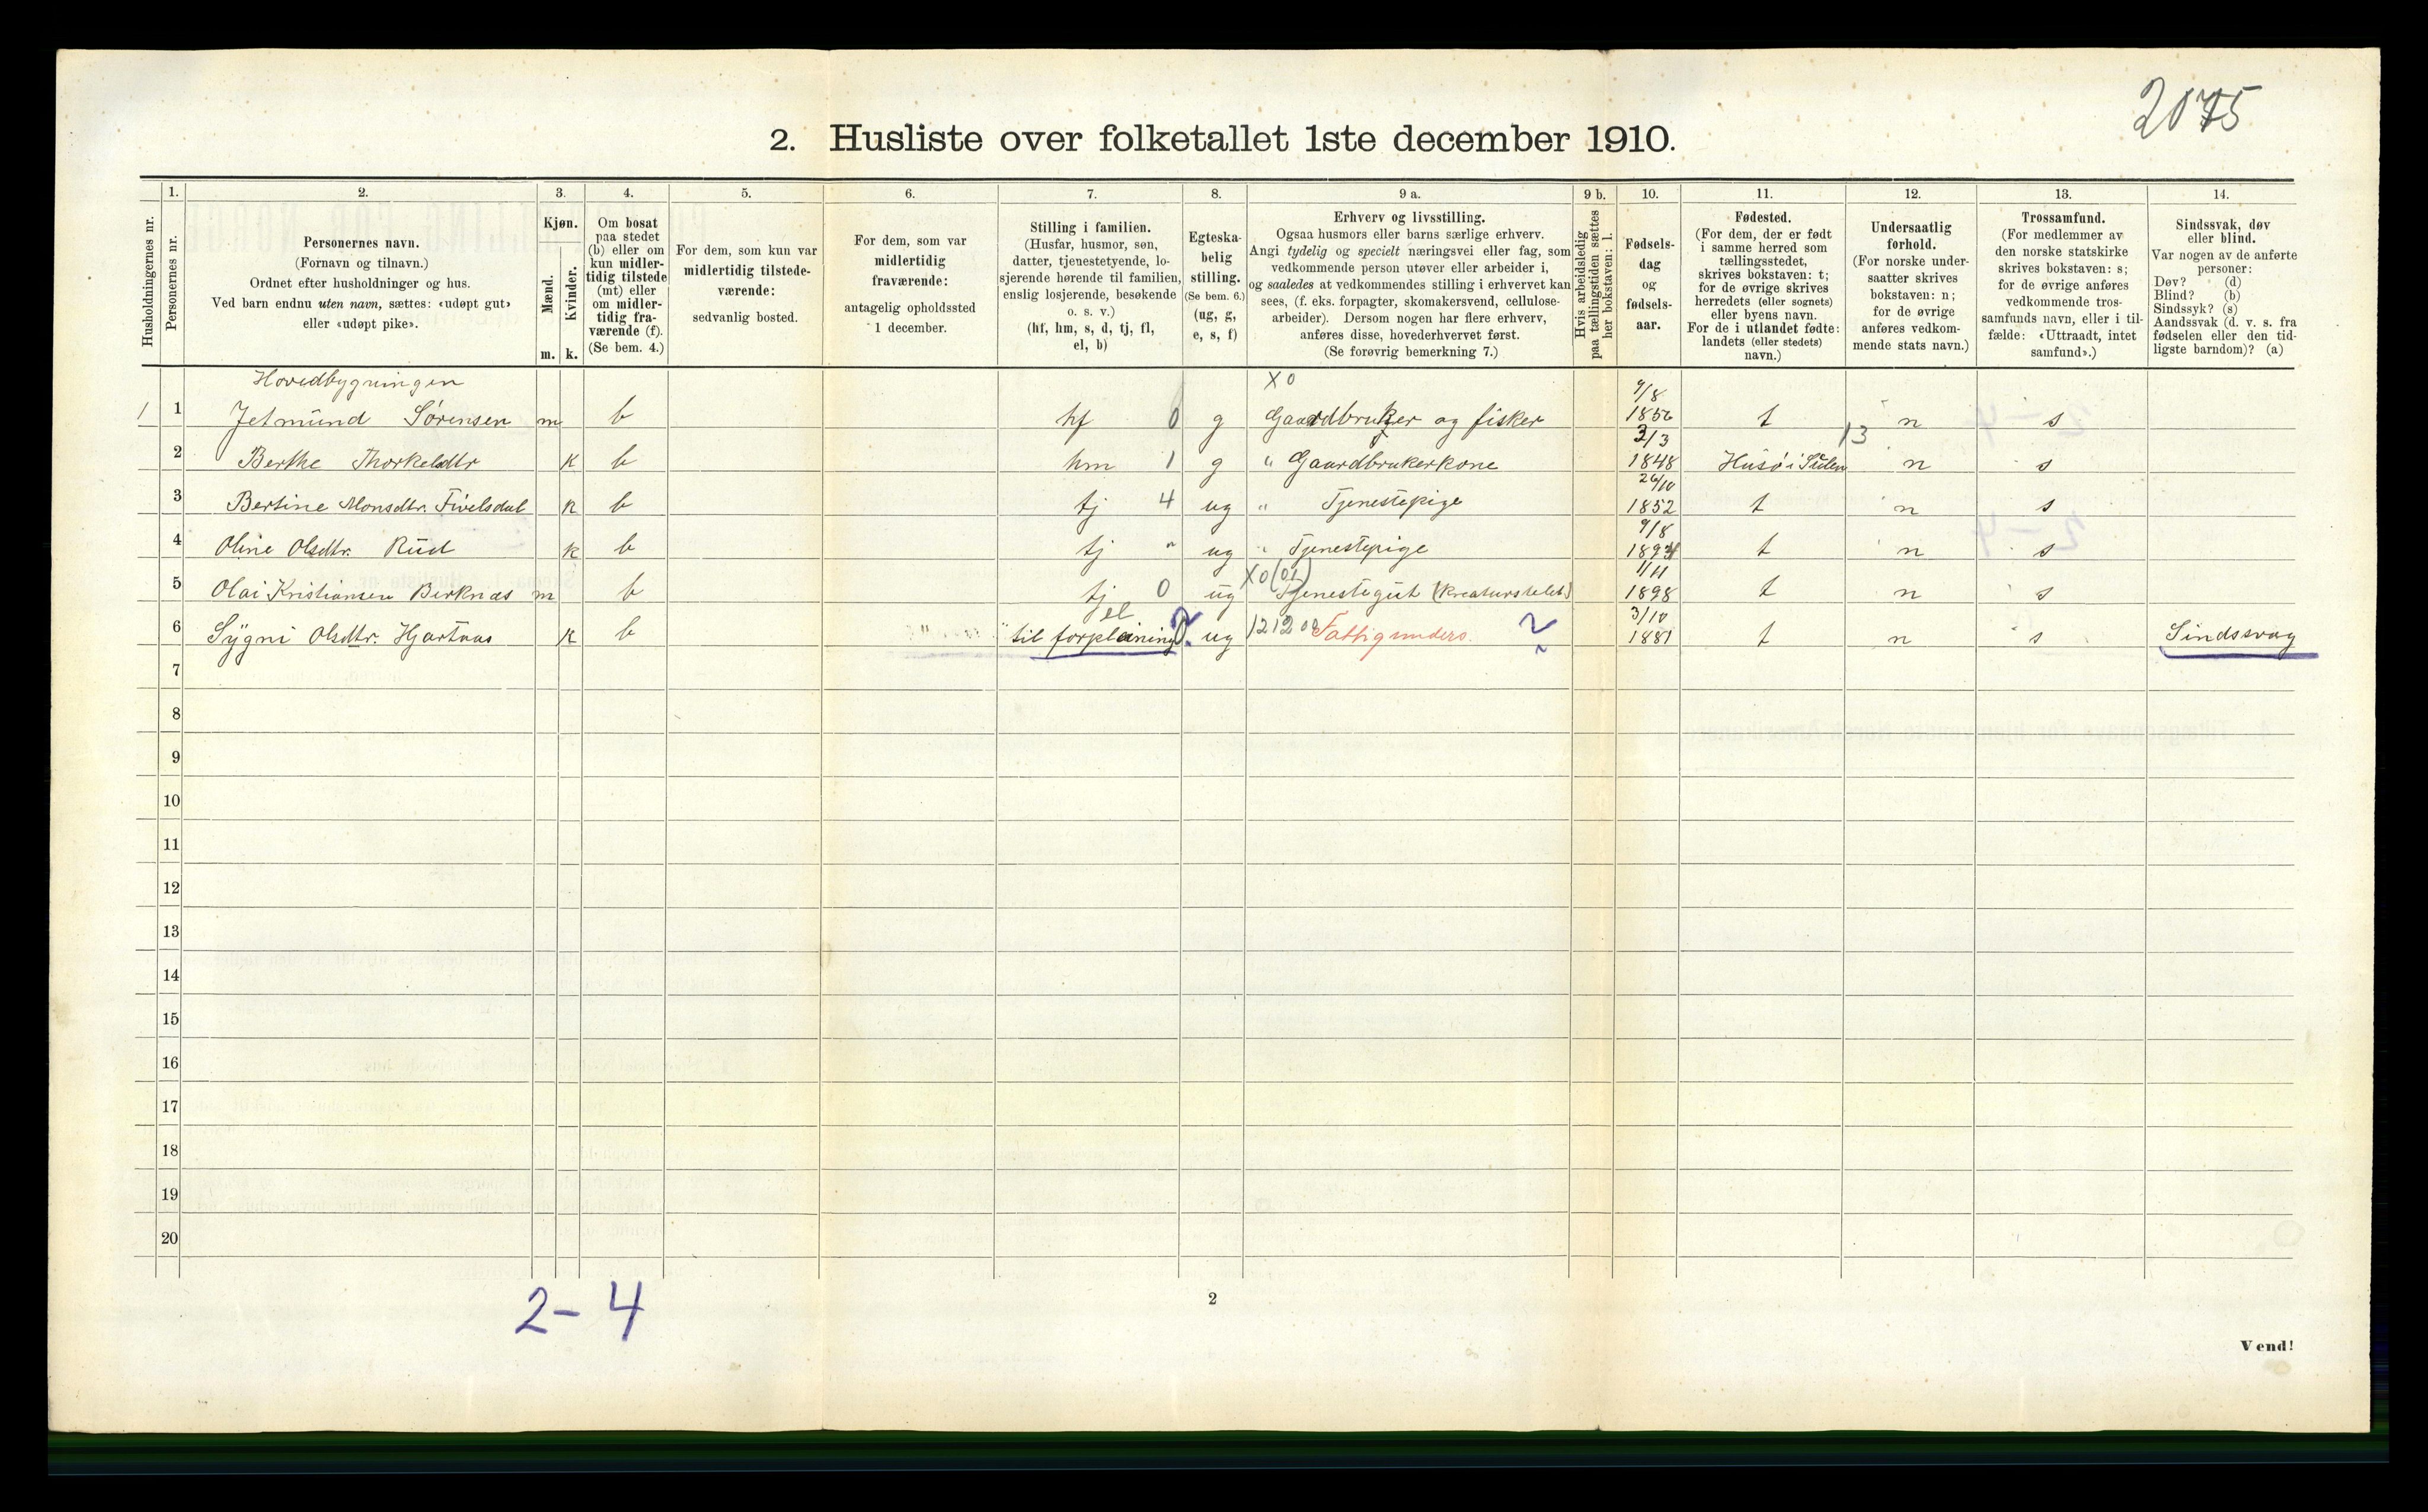 2075
2. Husliste over folketallet 1ste december 1910.
Husholdningernes nr.
1.
Personernes nr.
2.
Personernes navn.
(Fornavn og tilnavn.)
Ordnet efter husholdninger og hus.
Ved barn endnu uten navn, sættes: «udøpt gut»
eller «udøpt pike».
3.
Kjøn.
Mænd.
Kvinder.
m. k.
4.
Om bosat
paa stedet
(b) eller om
kun midler-
tidig tilstede
(mt) eller
om midler-
tidig fra-
værende (f).
(Se bem. 4.)
5.
For dem, som kun var
midlertidig tilstede-
værende:
sedvanlig bosted.
6.
For dem, som var
midlertidig
fraværende:
antagelig opholdssted
1 december.
7.
Stilling i familien.
(Husfar, husmor, søn,
datter, tjenestetyende, lo-
sjerende hørende til familien,
enslig losjerende, besøkende
o. s. v.)
(hf, hm, s, d, tj, fl,
el, b)
8.
Egteska-
belig
stilling.
(Se bem. 6.)
(ug, g,
e, s, f)
9 a.
Erhverv og livsstilling.
Ogsaa husmors eller barns særlige erhverv.
Angi tydelig og specielt næringsvei eller fag, som
vedkommende person utøver eller arbeider i,
og saaledes at vedkommendes stilling i erhvervet kan
sees, (f. eks. forpagter, skomakersvend, cellulose-
arbeider). Dersom nogen har flere erhverv,
anføres disse, hovederhvervet først.
(Se forøvrig bemerkning 7.)
9 b.
Hvis arbeidsledig
paa tællingstiden sættes
her bokstaven: l.
10.
Fødsels-
dag
og
fødsels-
aar.
11.
Fødested.
(For dem, der er født
i samme herred som
tællingsstedet,
skrives bokstaven: t;
for de øvrige skrives
herredets (eller sognets)
eller byens navn.
For de i utlandet fødte:
landets (eller stedets)
navn.)
12.
Undersaatlig
forhold.
(For norske under-
saatter skrives
bokstaven: n;
for de øvrige
anføres vedkom-
mende stats navn.)
13.
Trossamfund.
(For medlemmer av
den norske statskirke
skrives bokstaven: s;
for de øvrige anføres
vedkommende tros-
samfunds navn, eller i til-
fælde: «Uttraadt, intet
samfund».)
14.
Sindssvak, døv
eller blind.
Var nogen av de anførte
personer:
Døv? (d)
Blind? (b)
Sindssyk? (s)
Aandssvak (d. v. s. fra
fødselen eller den tid-
ligste barndom)? (a)
Hovedbygningen X0
1 1 Jetmund Sørensen m b hf 0 g Gaardbruker og fisker 9/8 1856 t n s
2 Berthe Thorkeldtr k b hm 1 g " Gaardbrukerkone 3/3 1848 Husø i Sulen 13 n s
3 Bertine Monsdtr. Fivelsdal k b tj 4 ug " Tjenestepige 26/10 1852 t n s
4 Oline Olsdtr. Rud k b tj " ug " Tjenestepige 9/8 1894 t n s
5 Olai Kristiansen Birknæs m b tj 0 ug X0(01) Tjenestegut (Kreaturstelet) 1/11 1898 t n s
6 Sygni Olsdtr. Hjartaas k b el til forpleining 0 ug 1212 02 Fattigunders. 3/10 1881 t n s Sindssvag
7
8
9
10
11
12
13
14
15
16
17
18
19
20
2-4
2
Vend!